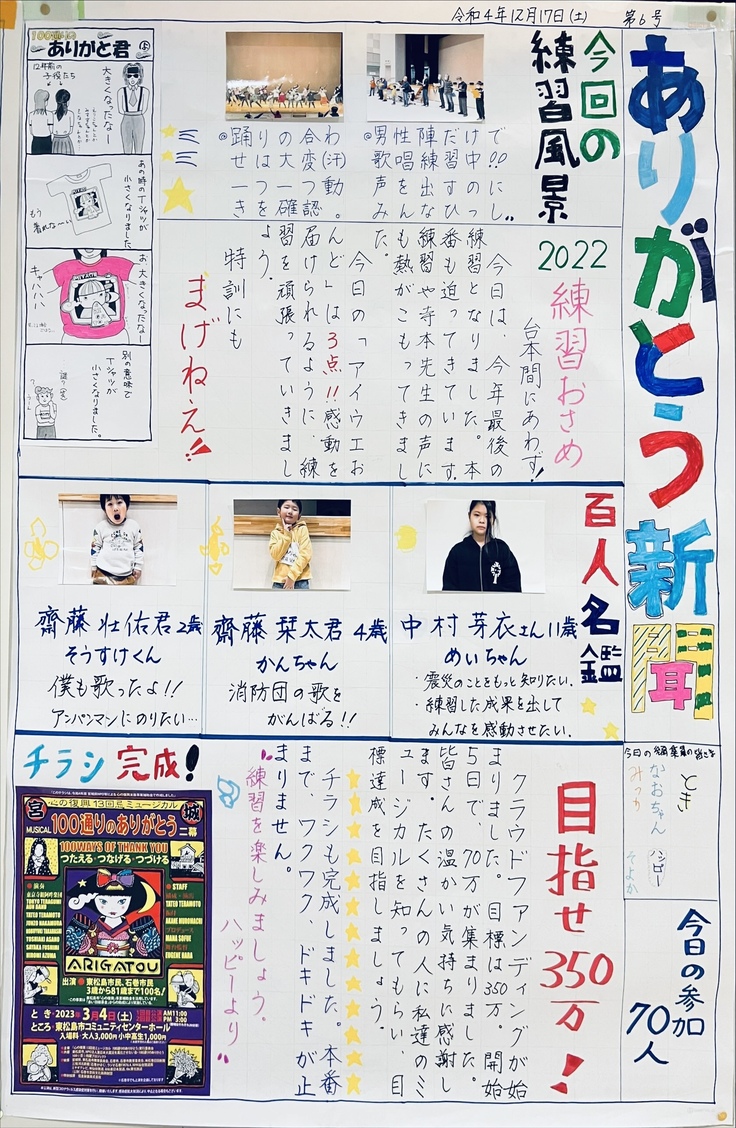 令和4年12月17日(土) 第6号
ありがとう新聞
今回の
練習風景
◎男性陣だけで
歌唱練習中!!
声を出すのに
みんなひっし!!
◎踊りの合わ
せは大変(汗)
一つ一つ動
きを確認。
2022
練習おさめ
台本間にあわず!
今日は、今年最後の
練習となりました。本
番も迫ってきています。
練習や寺本先生の声に
も熱がこもってきまし
た。
今日の「アイウエお
んど」は3点!!感動を
届けられるように、練
習を頑張っていきまし
ょう。
特訓にも
まげねえ!!
100通りの
ありがと君
12年前の
子役たち
大きくなったなー
あの時のTシャツが
小さくなりました
もう
着れな〜い
お、大きくなったなー
キャハハハ
別の意味で
Tシャツが
小さくなりました。
百人名鑑
中村芽衣さん11歳
めいちゃん
・震災のことをもっと知りたい。
・練習した成果を出して
みんなを感動させたい。
齋藤栞太君 4歳
かんちゃん
消防団の歌を
がんばる!!
齋藤壮佑君2歳
そうすけくん
僕も歌ったよ!!
アンパンマンにのりたい…
今日の編集員の皆さま
とき
なおちゃん
ハッピー
みっか
そよか
今日の参加
70人
目指せ350万!
クラウドファンディングが始
まりました。目標は350万、開始
5日で、70万が集まりました。
皆さんの温かい気持ちに感謝し
ます。たくさんの人に私達のミ
ュージカルを知ってもらい、目
標達成を目指しましょう。
チラシも完成しました。本番
まで、ワクワク、ドキドキが止
まりません。
練習を楽しみましょう。
ハッピーより
チラシ完成!
宮城
心の復興13回忌ミュージカル
MUSICAL 100通りのありがとう 二幕
100WAYS OF THANK YOU
つたえる・つなげる・つづける
STAFF
ARIGATOU
出演 東松島市民、石巻市民
3歳から81歳まで100名!
とき・2023年3月4日(土) AM11:00
PM 3:00
ところ・東松島市コミュニティセンターホール
入場料・大人3,000円 小中高生1,000円